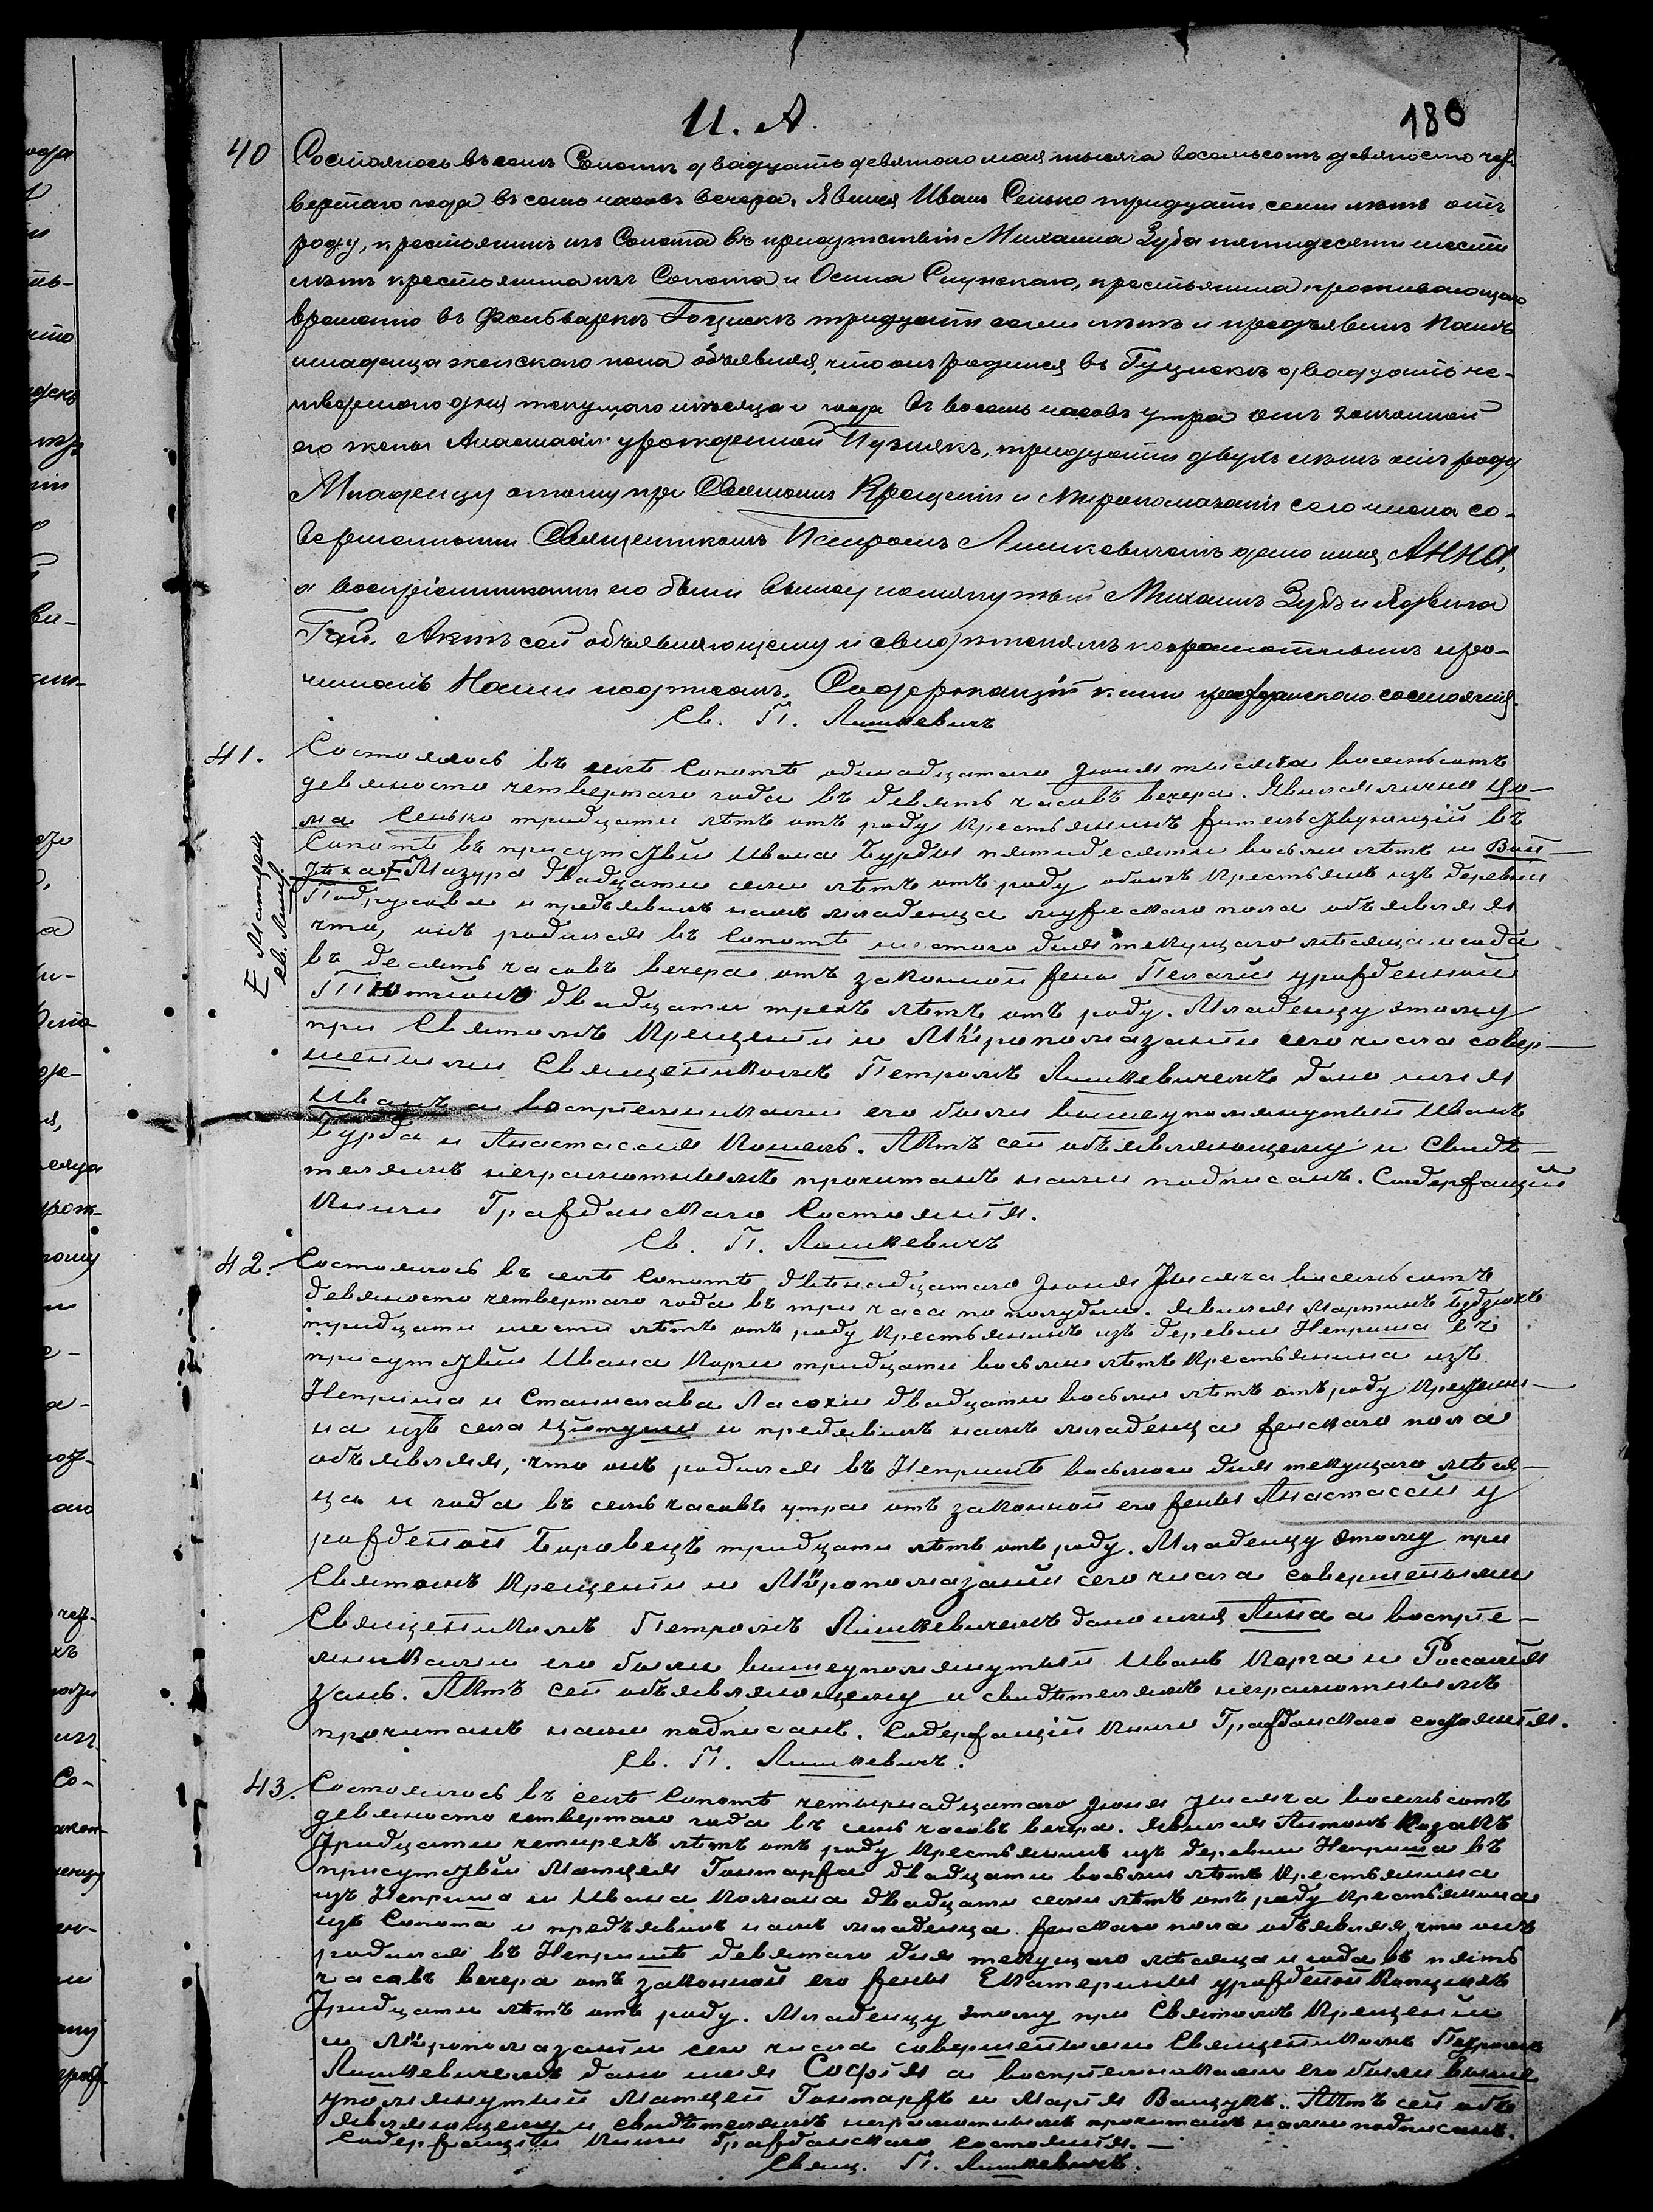 И. А.
180
40 Состоялось въ селѣ Сопотѣ двадцать девятаго мая тысяча восемьсотъ девяносто чет-
вертаго года въ семь часовъ вечера. Явился Иванъ Сенько тридцати семи лѣтъ отъ
роду, крестьянинъ изъ Сопота въ присутствіи Михаила Зуба пятидесяти шести
лѣтъ крестьянина изъ Сопота и Осипа крестьянина проживающаго
временно въ Фольваркѣ тридцати семи лѣтъ и предъявилъ Намъ
младенца женскаго пола объявляя, что онъ родился въ двадцать че-
твертаго дня текущаго мѣсяца и года въ восемь часовъ утра отъ законной
его жены Анастасіи урожденной Пузнякъ, тридцати двухъ лѣтъ отъ роду
Младенцу этому при Святомъ Крещеніи и Миропомазаніи сего числа со-
вершенномъ Священникомъ Петромъ Ляшкевичемъ дано имя АННА,
а воспріемниками его были вышеупомянутый Михаилъ Зубъ и Ядвига
Гай. Актъ сей объявляющему и свидѣтелямъ неграмотнымъ про-
читанъ Нами подписанъ. Содержащій книги гражданскаго состоянія.
Св. П. Ляшкевичъ
41. Состоялось въ селѣ Сопотѣ одинадцатаго Іюня тысяча восемьсотъ
девяносто четвертаго года въ девять часовъ вечера. Явился лично
Сенько тридцати лѣтъ отъ роду крестьянинъ жительствующій въ
Сопотѣ въ присутствіи Ивана Бурды пятидесяти восьми лѣтъ и Вой-
Мазура двадцати семи лѣтъ отъ роду обоихъ крестьянъ изъ деревни
и предъявилъ намъ младенца мужескаго пола объявляя
что, онъ родился въ Сопотѣ шестого дня текущаго мѣсяца и года
въ десять часовъ вечера отъ законной жены Пелагіи урожденной
двадцати трехъ лѣтъ отъ роду. Младенцу этому
при Святомъ Крещеніи и Мѵропомазаніи сего числа совер-
шенными Священникомъ Петромъ Ляшкевичемъ дано имя
Иванъ а воспріемниками его были вышеупомянутый Иванъ
Бурда и Анастасія Кошель. Актъ сей объявляющему и Свидѣ-
телямъ неграмотнымъ прочитанъ нами подписанъ. Содержащій
Книги Гражданскаго Состоянія.
Св. П. Ляшкевичъ
42. Состоялось въ селѣ Сопотѣ двѣнадцатаго Іюня Тысяча восемьсотъ
девяносто четвертаго года въ три часа по полудни. Явился Мартинъ
тридцати шести лѣтъ отъ роду крестьянинъ изъ деревни Неприша въ
присутствіи Ивана Карги тридцати восьми лѣтъ крестьянина изъ
Неприша и Станислава Ласохи двадцати восьми лѣтъ отъ роду крестьяни-
на изъ села и предъявилъ намъ младенца женскаго пола
объявляя, что онъ родился въ Непришѣ восьмого дня текущаго мѣся-
ца и года въ семь часовъ утра отъ законной его жены Анастасіи у
рожденной Боровецъ тридцати лѣтъ отъ роду. Младенцу этому при
Святомъ Крещеніи и Мѵропомазаніи сего числа совершенными
Священникомъ Петромъ Ляшкевичемъ дано имя Анна а воспріе-
мниками его были вышеупомянутый Иванъ Карга и
Актъ сей объявляющему и свидѣтелямъ неграмотнымъ
прочитанъ нами подписанъ. Содержащій Книги Гражданскаго состоянія.
Св. П. Ляшкевичъ.
43. Состоялось въ селѣ Сопотѣ четырнадцатаго Іюня Тысяча восемьсотъ
девяносто четвертаго года въ семь часовъ вечера. Явился Антонъ Козакъ
Тридцати четырехъ лѣтъ отъ роду крестьянинъ изъ деревни Неприша въ
присутствіи Матцея Гонтаржа двадцати восьми лѣтъ крестьянина
изъ Неприша и Ивана Комана двадцати семи лѣтъ отъ роду крестьянина
изъ Сопота и предъявилъ намъ младенца женскаго пола объявляя, что онъ
родился въ Непришѣ девятаго дня текущаго мѣсяца и года въ пять
часовъ вечера отъ законной его жены Екатерины урожденной
Тридцати лѣтъ отъ роду. Младенцу этому при Святомъ Крещеніи
и Мѵропомазаніи сего числа совершенными Священникомъ Петромъ
Ляшкевичемъ дано имя Софія а воспріемниками его были выше
упомянутый Матцей Гонтаржъ и Марія Ващукъ. Актъ сей объ
являющему и свидѣтелямъ неграмотнымъ прочитанъ нами подписанъ.
Содержащій Книги Гражданскаго Состоянія. —
Свящ. П. Ляшкевичъ.